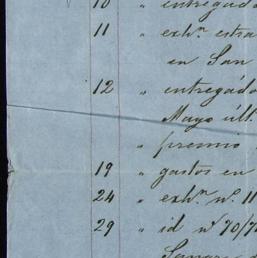 10 " entregad
11 " exhn. estra
en San
12 " entregádo
Mayo últ
" premio
19 " gastos en
24 " exhn. nº. 11
29 " id nº 70/7